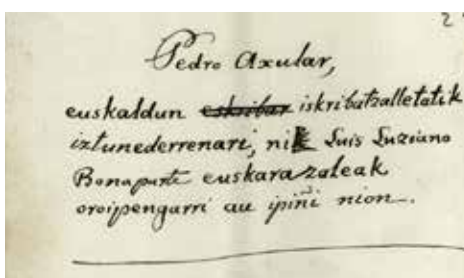 2
Pedro Axular,
euskaldun eskribar iskribatzalletatik
iztunederrenari, nik Luis Luziano
Bonaparte euskarazaleak
oroipengarri au ipiñi nion.